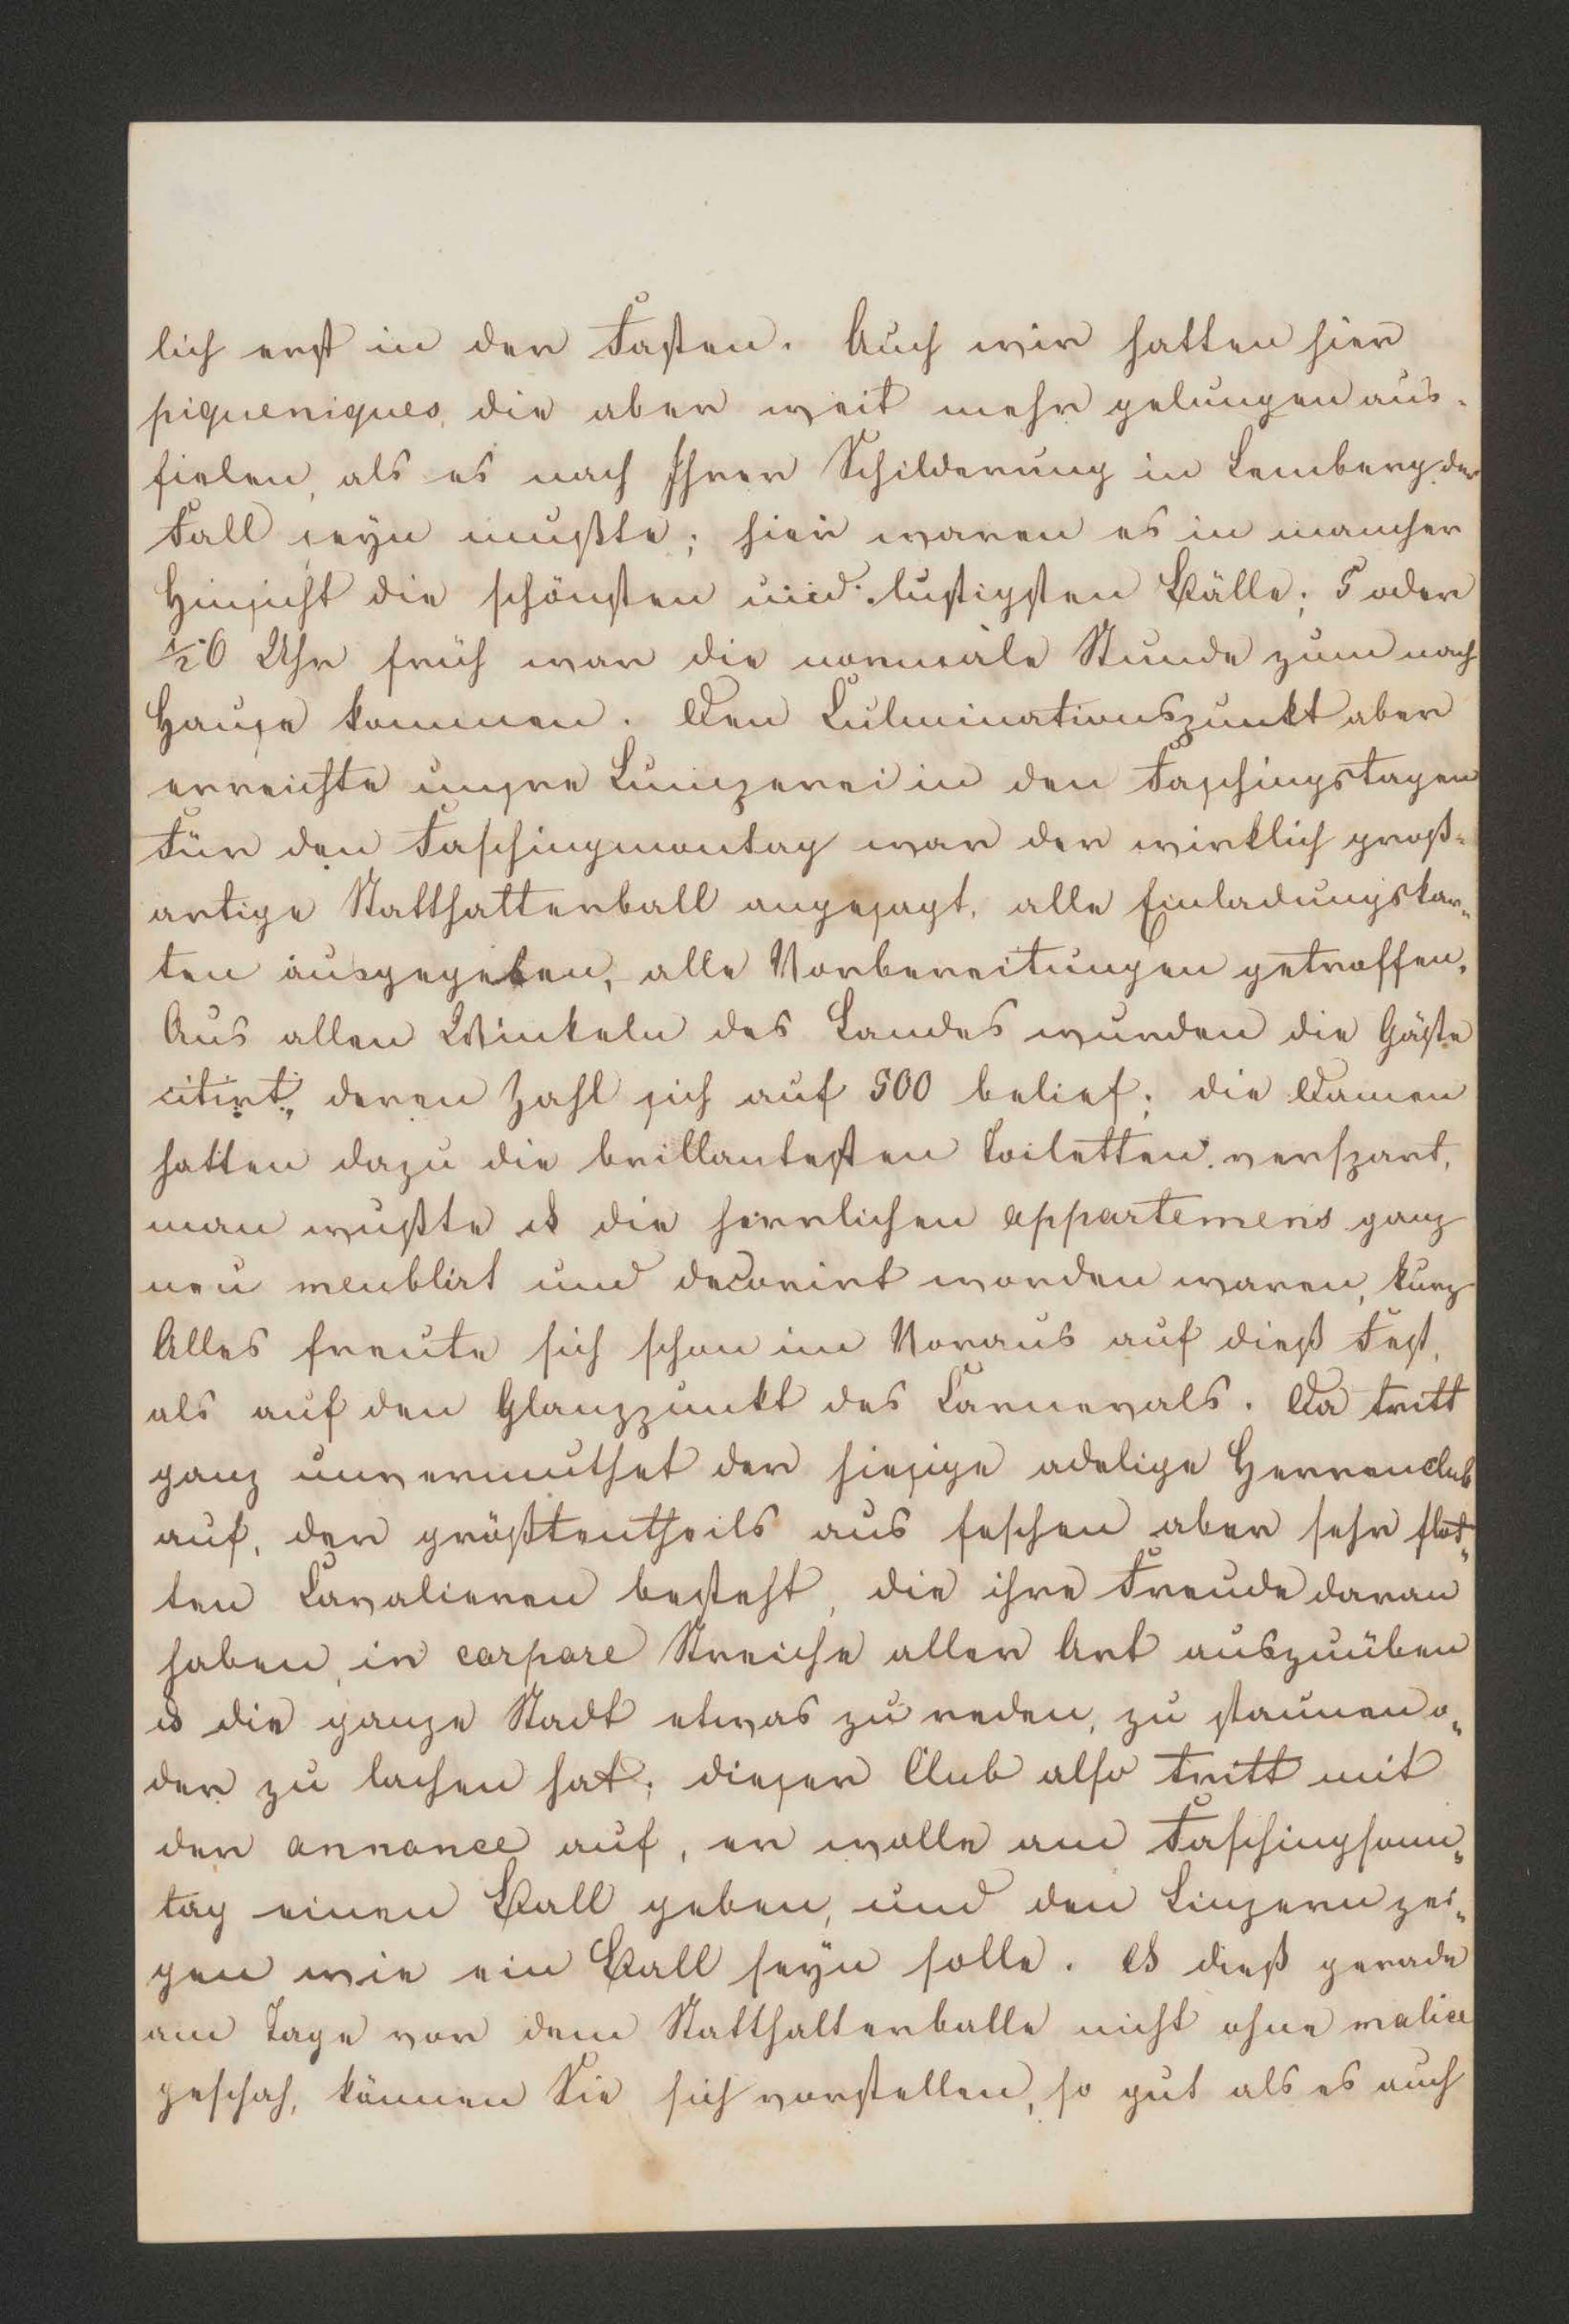 lich erst in der Fasten. Auch wir hatten hier
piqueniques, die aber weit mehr gelungen aus-
fielen, als es nach Ihrer Schilderung in Lemberg der
Fall seyn mußte; hier waren es in mancher
Hinsicht die schönsten und lustigsten Bälle; 5 oder
½6 Uhr früh war die normale Stunde zum nach
Hause kommen. Den Culminationspunkt aber
erreichte unsre Lumperei in den Faschingstagen
Für den Faschingmontag war der wirklich groß-
artige Statthalterball angesagt, alle Einladungskar-
ten ausgegeben, alle Vorbereitungen getroffen.
Aus allen Winkeln des Landes wurden die Gäste
citirt, deren Zahl sich auf 500 belief; die Damen
hatten dazu die brillantesten Toiletten verspart,
man wußte ds die herrlichen appartemens ganz
neu meublirt und decorirt worden waren, kurz
Alles freute sich schon im Voraus auf dieß Fest,
als auf den Glanzpunkt des Carnevals. Da tritt
ganz unvermuthet der hiesige adelige Herrenclub
auf, der größtentheils aus feschen aber sehr flot-
ten Cavalieren besteht, die ihre Freude daran
haben, in corpore Streiche aller Art auszuüben
ds die ganze Stadt etwas zu reden, zu staunen o-
der zu lachen hat; dieser Club also tritt mit
der annonce auf, er wolle am Faschingsonn-
tag einen Ball geben, und den Linzern zei-
gen wie ein Ball seyn solle. Ds dieß gerade
am Tage vor dem Statthalterballe nicht ohne malice
geschah, können Sie sich vorstellen, so gut als es auch